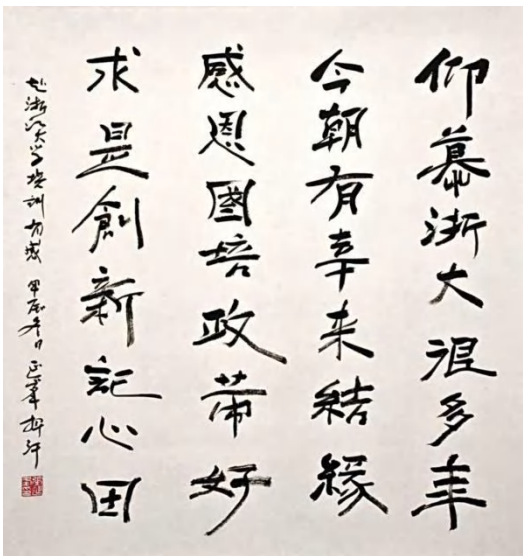 仰慕浙大很多年
今朝有幸来結緣
感恩國培政策好
求是創新記心田
赴浙江大学培訓有感 甲辰冬日 正